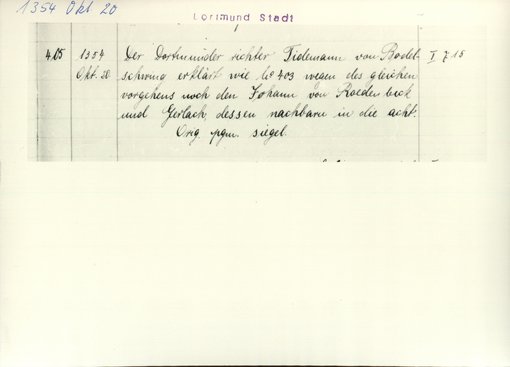 1354 Okt 20
Dortmund Stadt
405 1354 Der Dortmunder richter Tidemann von Bodel- I 7 15
Okt. 20 schwing erklärt wie No 403 wegen des gleichen
vorgehens noch den Johann von Raedenbeck
und Gerlach, dessen nachbarn in die acht.
Orig. pgm. siegel.